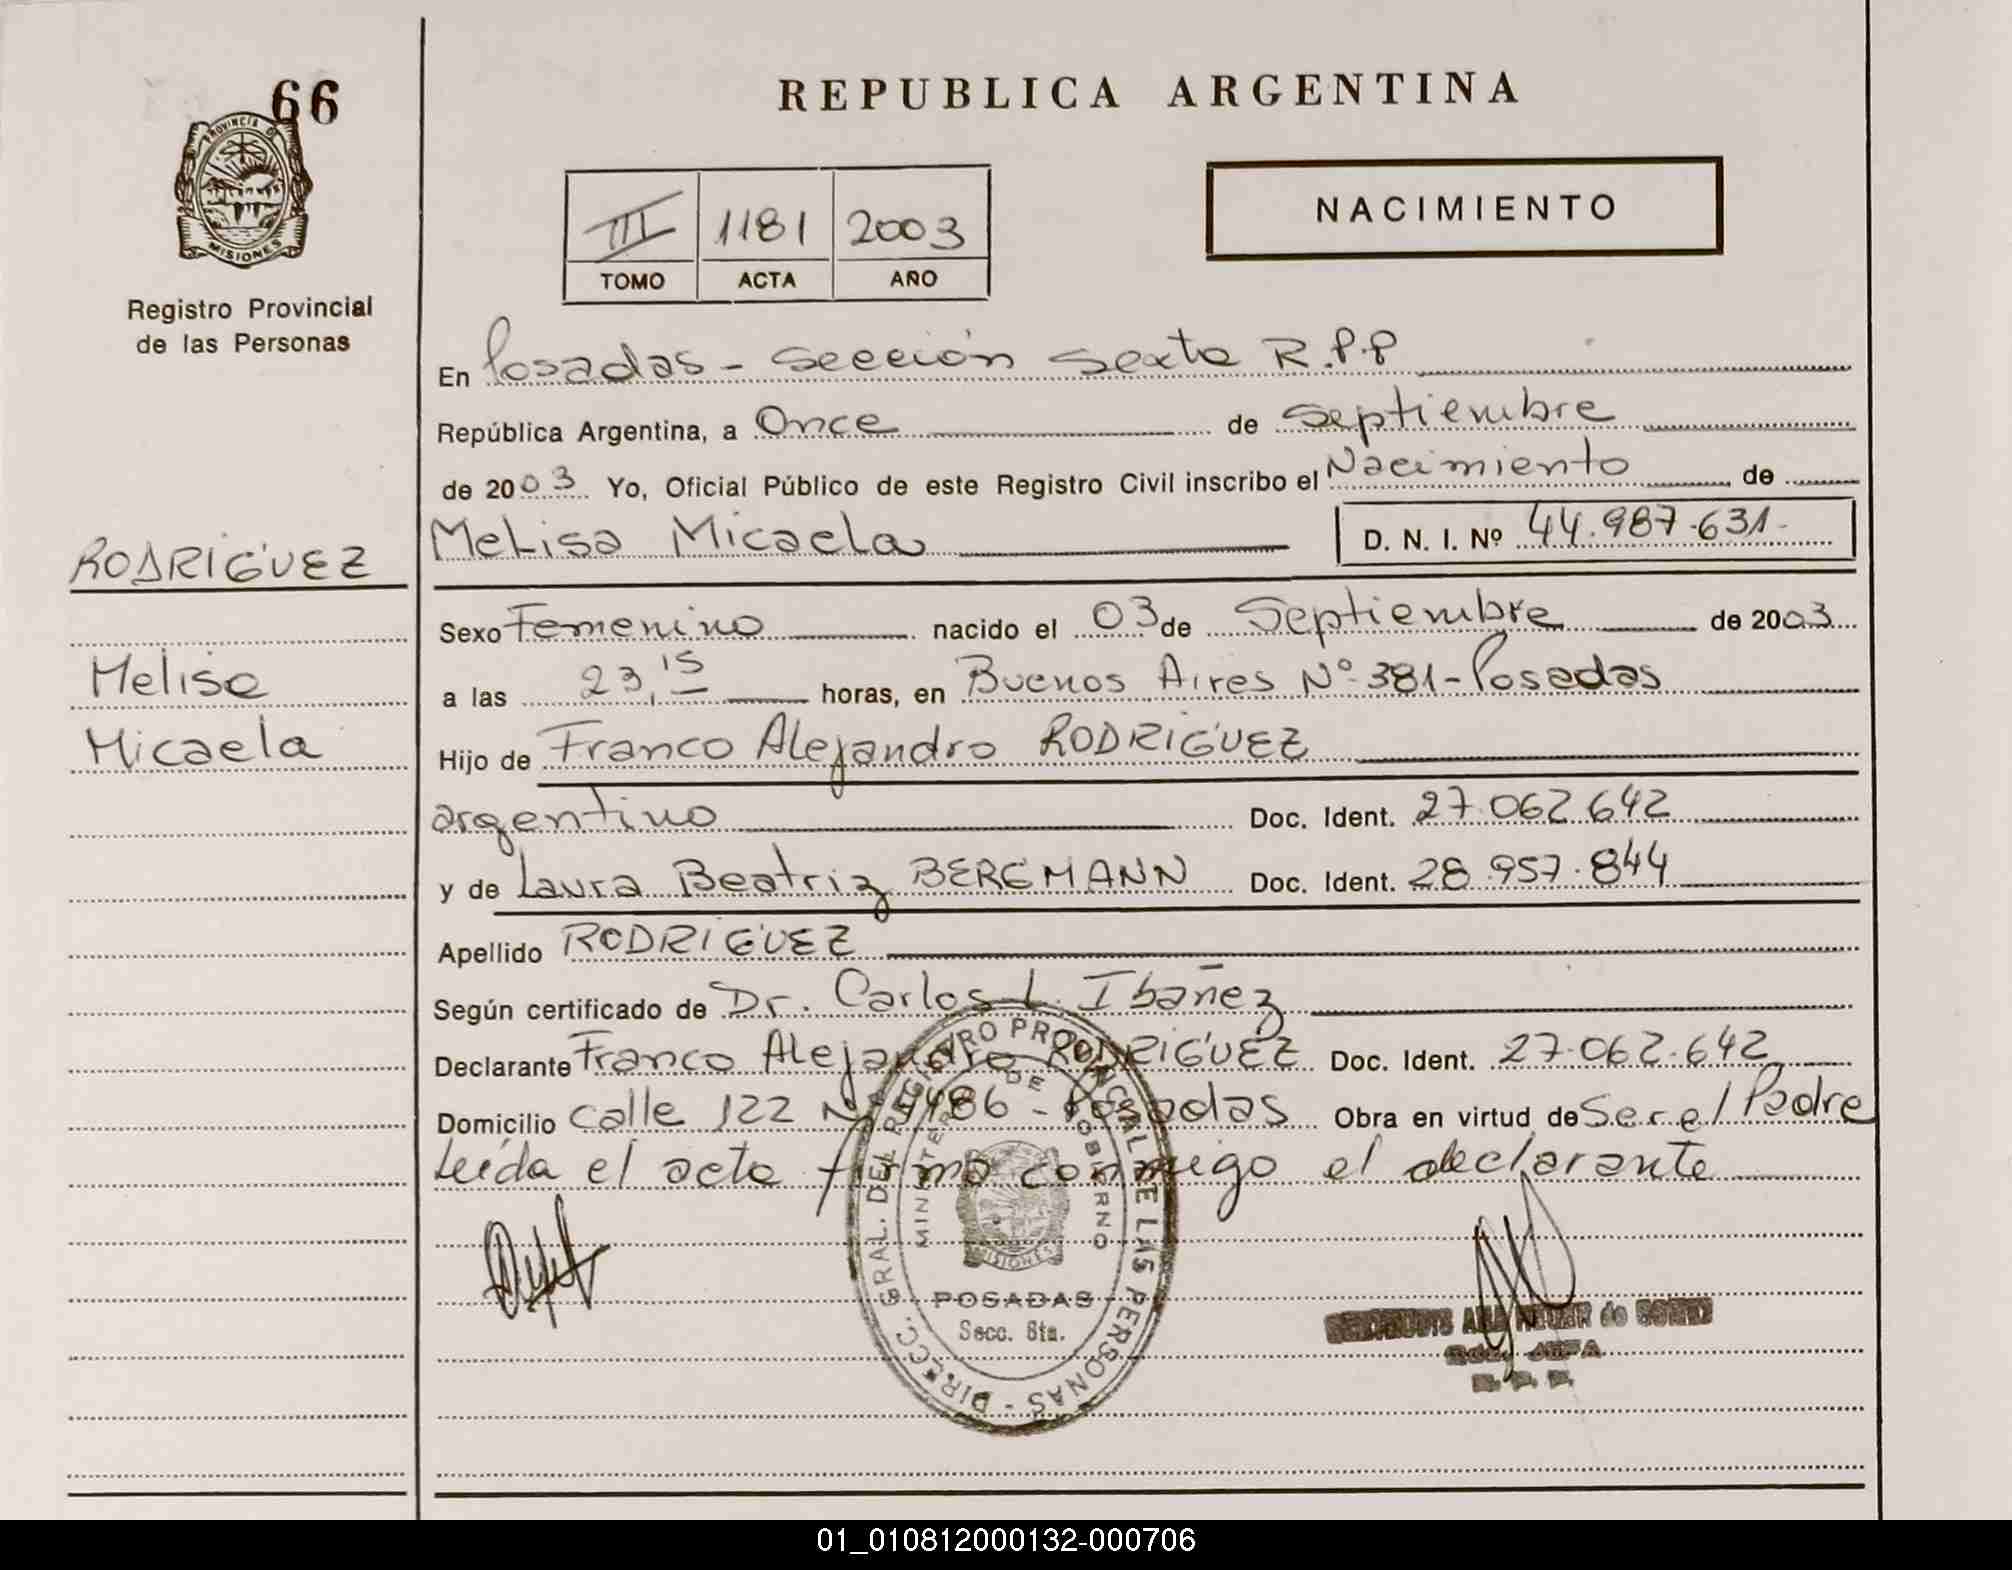 66
PROVINCIA DE
MISIONES
Registro Provincial
de las Personas
RODRIGUEZ
Melisa
Micaela
REPUBLICA ARGENTINA
III 1181 2003
TOMO ACTA AÑO
NACIMIENTO
En Posadas - Sección Sexta R.P.P
República Argentina, a Once de Septiembre
de 2003 Yo, Oficial Público de este Registro Civil inscribo el Nacimiento de
Melisa Micaela D. N. I. Nº 44.987.631-
Sexo Femenino nacido el 03 de Septiembre de 2003
a las 23,15 horas, en Buenos Aires Nº 381-Posadas
Hijo de Franco Alejandro RODRIGUEZ
argentino Doc. Ident. 27.062.642
y de Laura Beatriz BERGMANN Doc. Ident. 28.957.844
Apellido RODRIGUEZ
Según certificado de Dr. Carlos L. Ibañez
Declarante Franco Alejandro RODRIGUEZ Doc. Ident. 27.062.642
Domicilio calle 122 Nº 4486 - Posadas Obra en virtud de Ser el Padre
Leída el acta firma conmigo el declarante
DIRECC. GRAL. DEL REGISTRO PROVINCIAL DE LAS PERSONAS -
MINISTERIO DE GOBIERNO
MISIONES
POSADAS
Secc. 6ta.
de
JEFA
R. P. P.
01_010812000132-000706